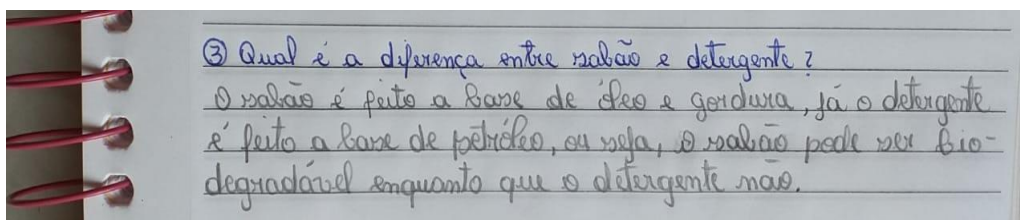 ③ Qual é a diferença entre sabão e detergente?
O sabão é feito a base de óleo e gordura, já o detergente
é feito a base de petróleo, ou seja, o sabão pode ser bio-
degradável enquanto que o detergente não.